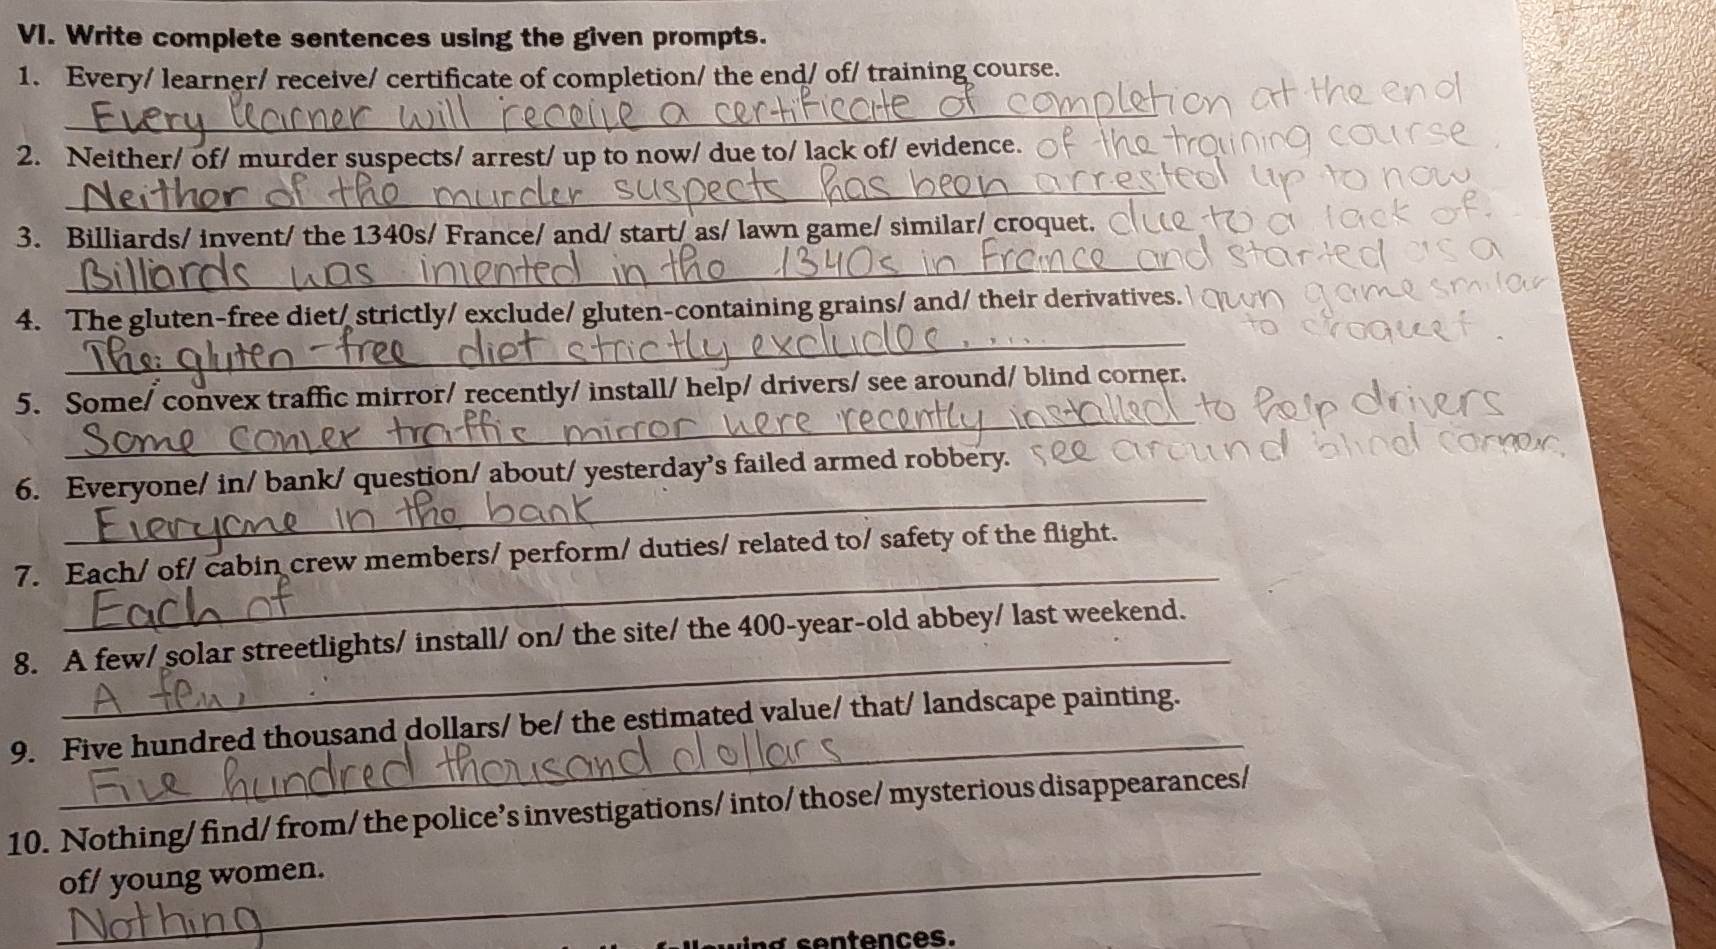 VI. Write complete sentences using the given prompts.
1. Every/ learner/ receive/ certificate of completion/ the end/ of/ training course.
Every learner will receive a certificate of completion at the end
of the training course.
2. Neither/ of/ murder suspects/ arrest/ up to now/ due to/ lack of/ evidence.
Neither of the murder suspects has been arrested up to now
due to a lack of.
3. Billiards/ invent/ the 1340s/ France/ and/ start/ as/ lawn game/ similar/ croquet.
Billiards was invented in the 1340s in France and started as a
lawn game smilar
to croquet.
4. The gluten-free diet/ strictly/ exclude/ gluten-containing grains/ and/ their derivatives.
The gluten-free diet strictly excludes....
5. Some/ convex traffic mirror/ recently/ install/ help/ drivers/ see around/ blind corner.
Some conver traffic mirror were recently installed to help drivers
see around blind corner.
6. Everyone/ in/ bank/ question/ about/ yesterday's failed armed robbery.
Everyone in the bank
7. Each/ of/ cabin crew members/ perform/ duties/ related to/ safety of the flight.
Each of
8. A few/ solar streetlights/ install/ on/ the site/ the 400-year-old abbey/ last weekend.
A few
9. Five hundred thousand dollars/ be/ the estimated value/ that/ landscape painting.
Five hundred thousand dollars
10. Nothing/ find/ from/ the police's investigations/ into/ those/ mysterious disappearances/
of/ young women.
Nothing
sentences.